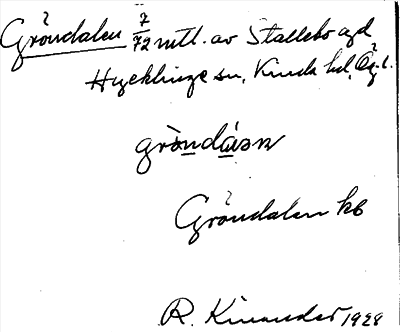 Gröndalen 7/72 mtl. av Stallebo egd
Hycklinge sn, Kinda hd, Ög.l.
gròndáın
Gröndalen kb
R. Kinander 1928